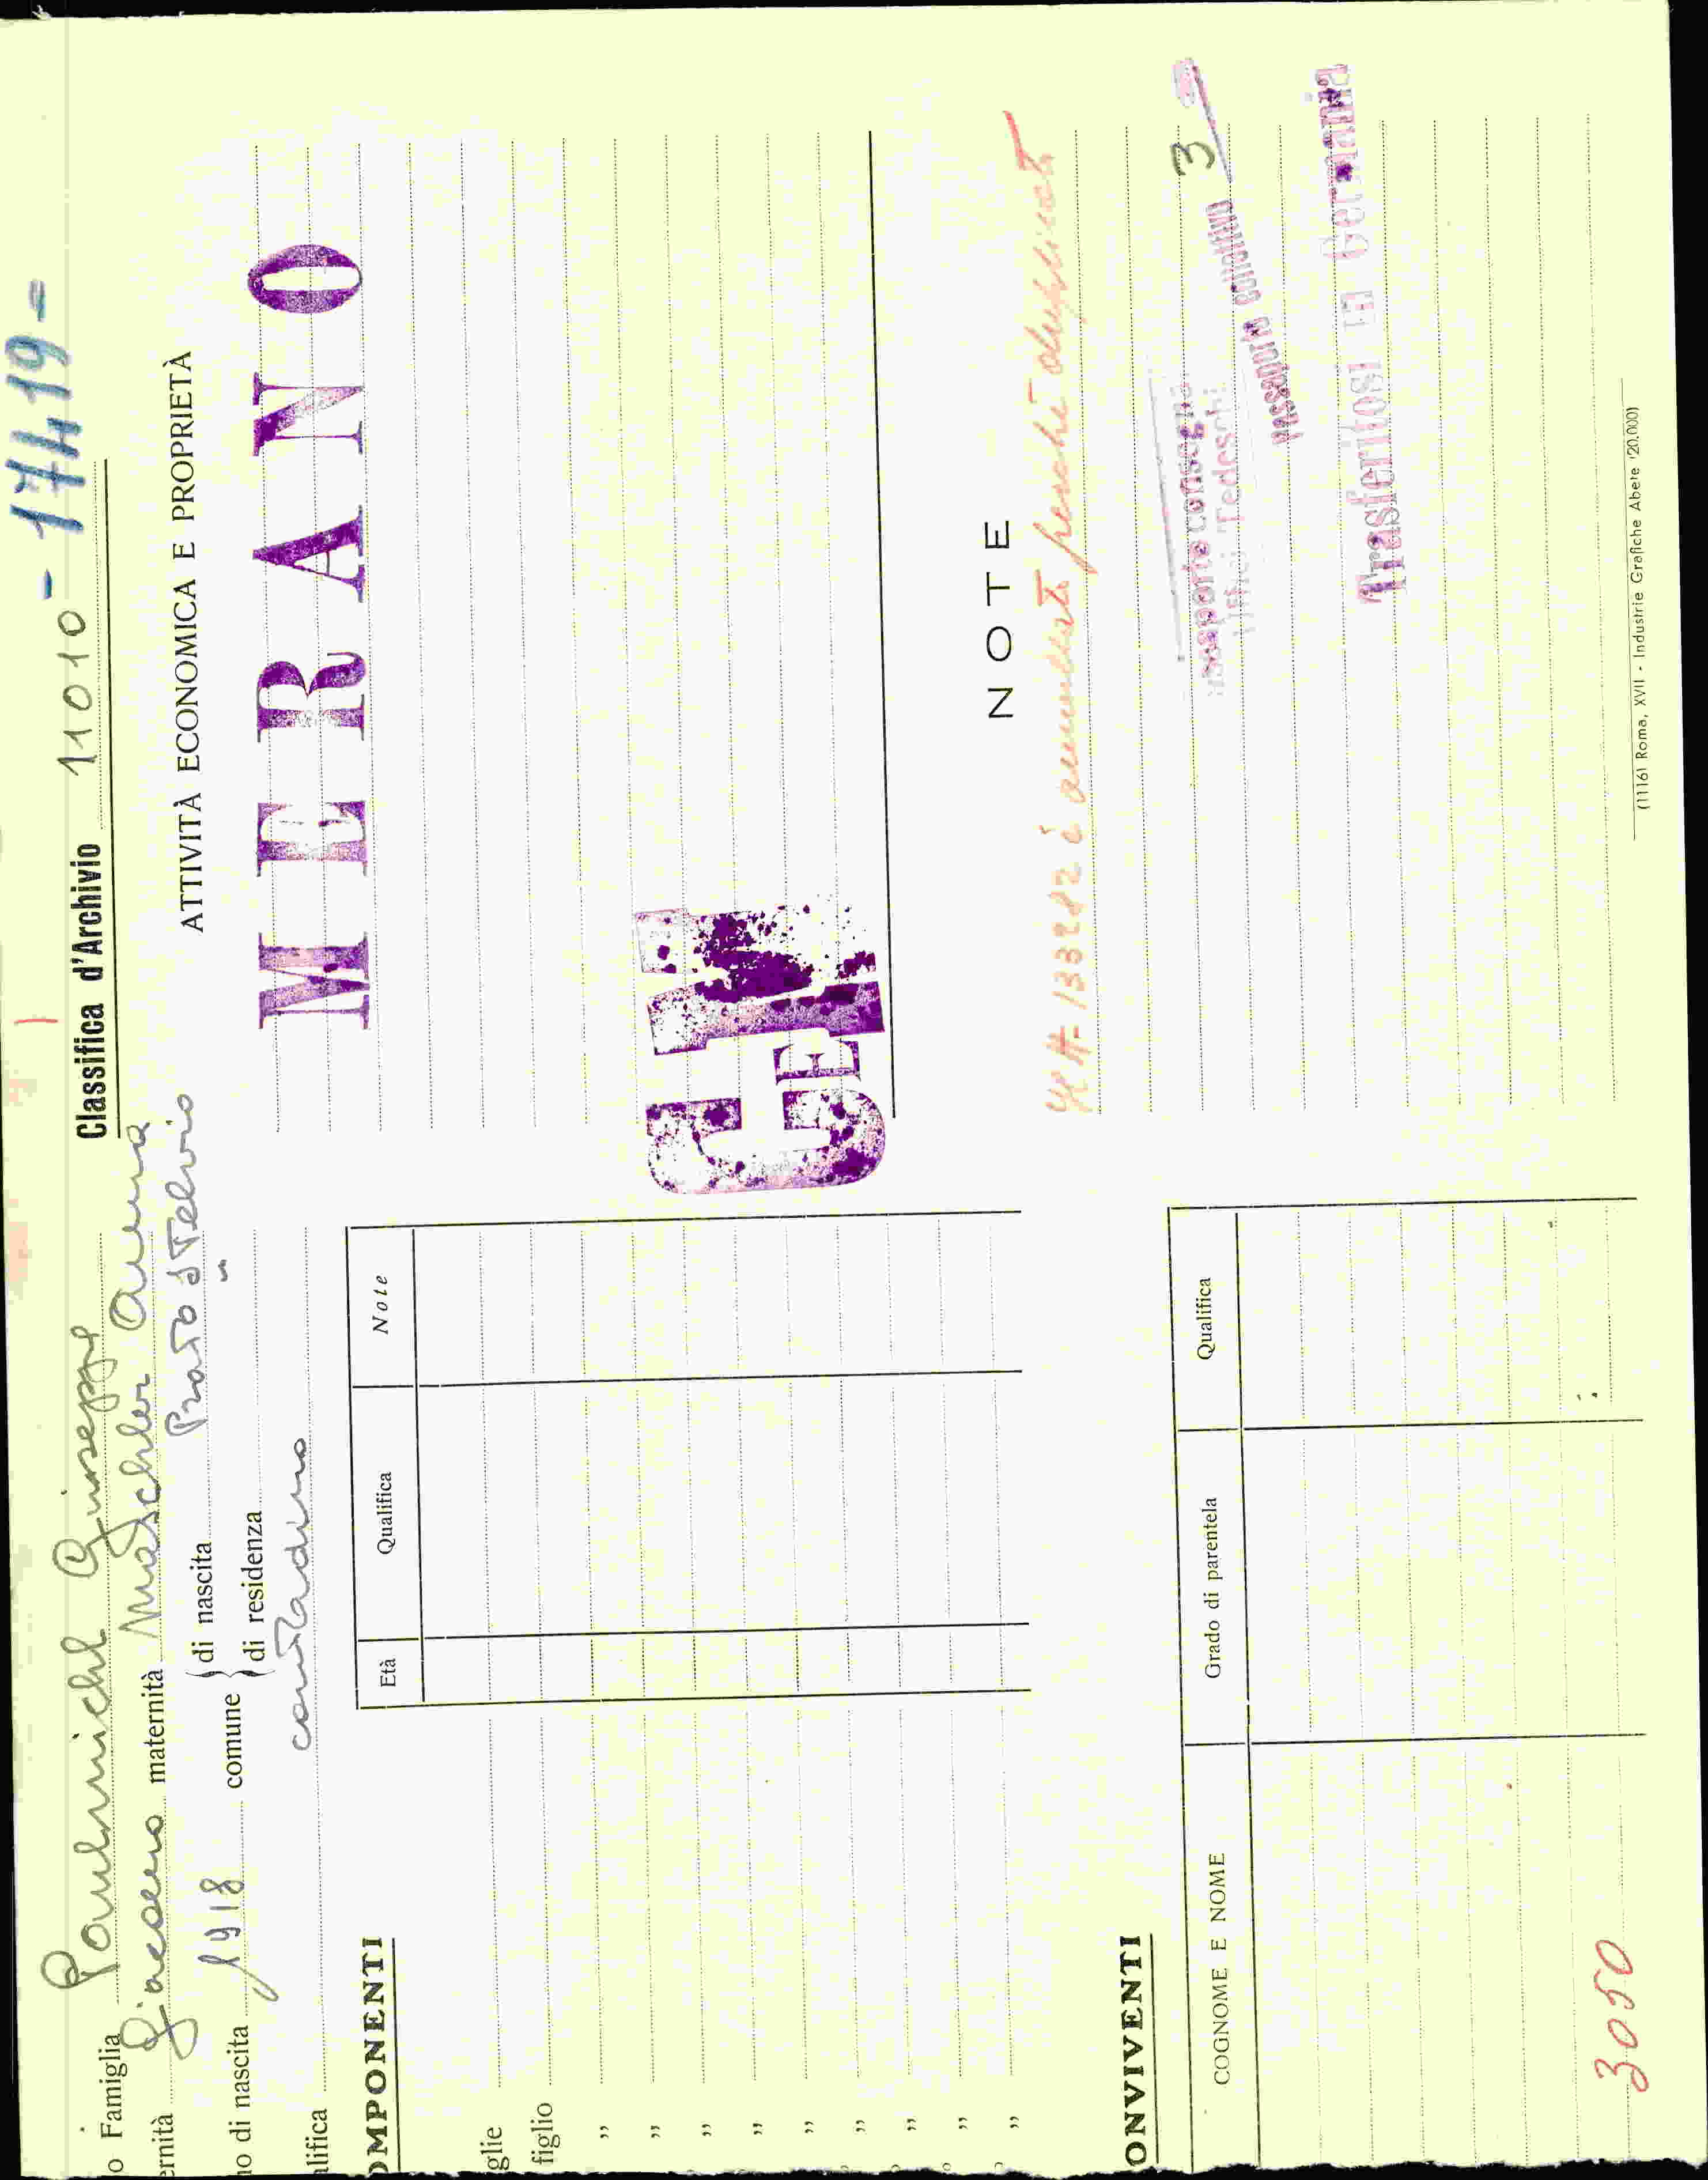 o Famiglia Paulmichl Giuseppe
ernità Giacomo maternità Maschler Anna
o di nascita 1918 comune } di nascita Prato S Telvio
di residenza "
alifica contadino
Classifica d'Archivio 11010 - 17419 -
ATTIVITÀ ECONOMICA E PROPRIETÀ
MERANO
OMPONENTI
Età Qualifica Note
glie
figlio
"
"
"
"
"
"
"
"
"
NOTE
13382 è annullato perché
passaporto consegn
Uffici Tedeschi
passaporto collettivo 3
Trasferitosi in Germania
ONVIVENTI
COGNOME E NOME Grado di parentela Qualifica
3050
(11161 Roma, XVII - Industrie Grafiche Abete (20.000)